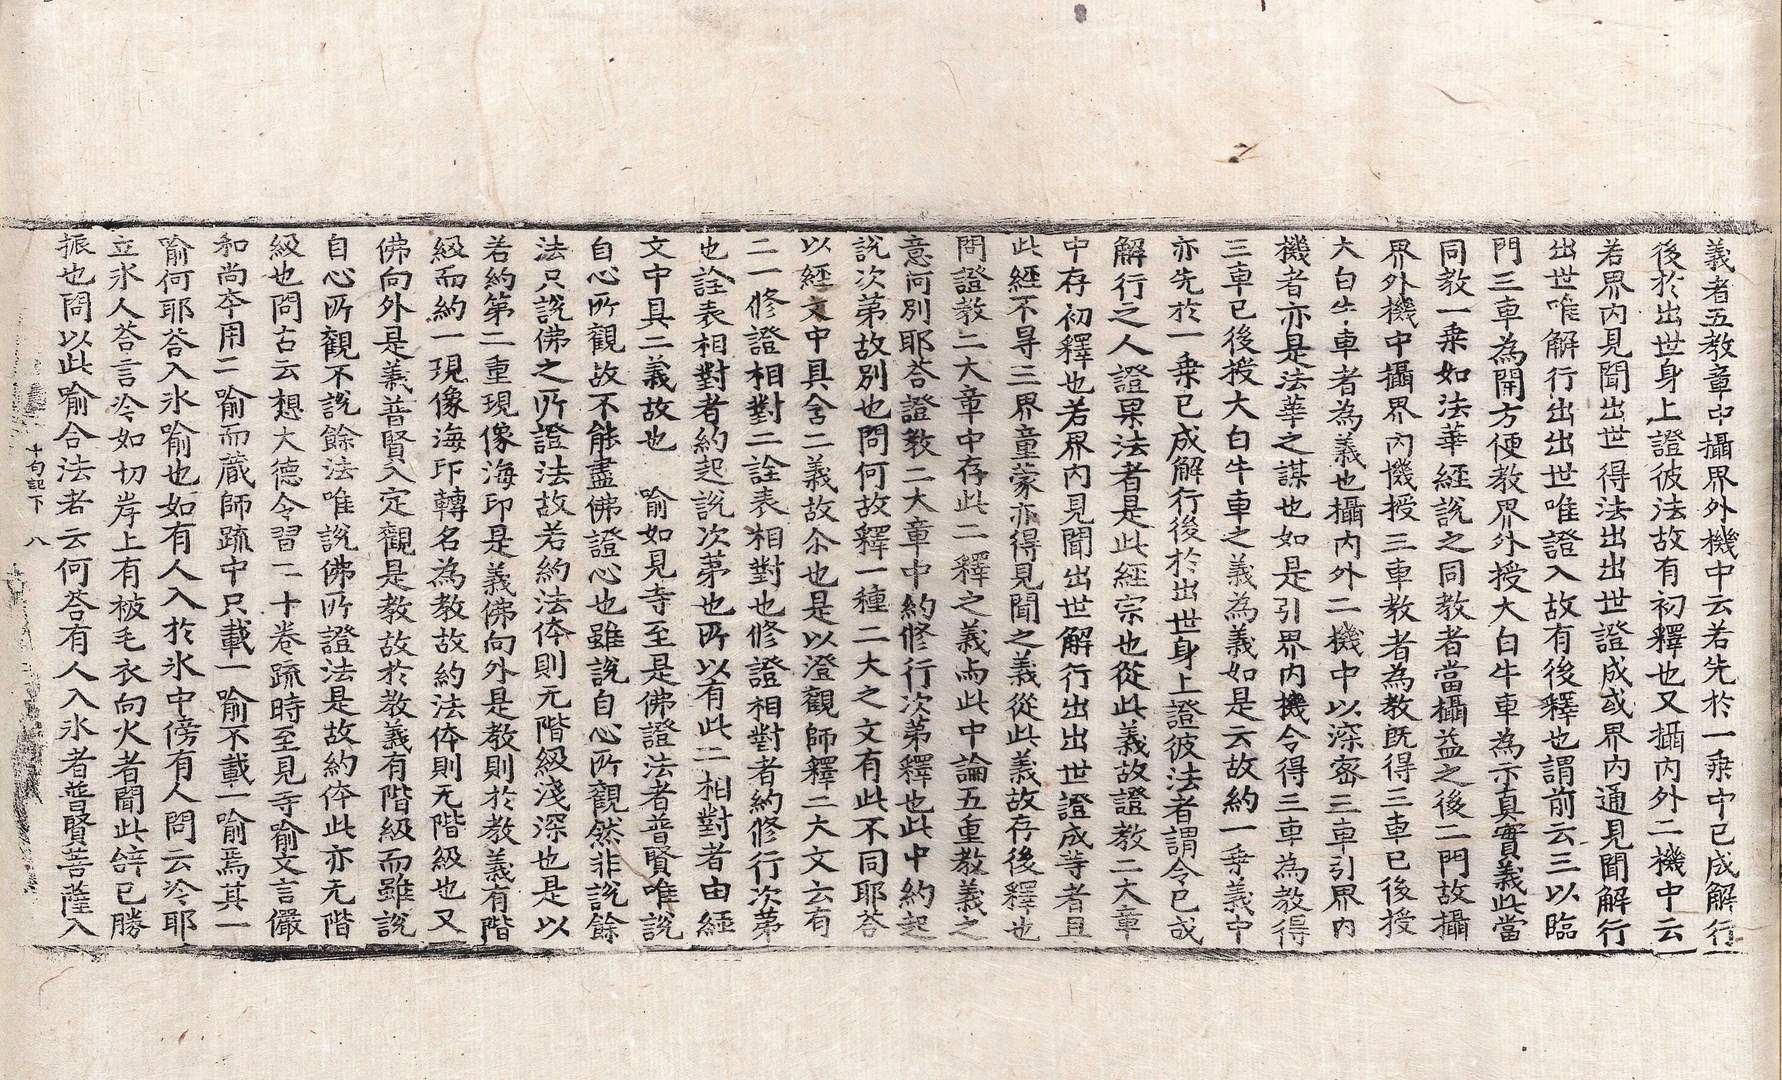 義者五教章中攝界外機中云若先於一乗中已成解行
後於出世身上證彼法故有初釋也又攝内外二機中云
若界内見聞出世得法出出世證成或界内通見聞解行
出世唯解行出出世唯證入故有後釋也謂前云三以臨
門三車為開方便教界外授大白牛車為示真實義此當
同教一乗如法華經說之同教者當攝益之後二門故攝
界外機中攝界内機授三車教者為教旣得三車已後授
大白牛車者為義也攝内外二機中以深宻三車引界内
機者亦是法華之謀也如是引界内機令得三車為教得
三車已後授大白牛車之義為義如是云故約一乗義中
亦先於一乗已成解行後於出世身上證彼法者謂今已成
解行之人證果法者是此經宗也從此義故證教二大章
中存初釋也若界内見聞出世解行出出世證成等者且
此經不㝵三界童蒙亦得見聞之義從此義故存後釋也
問證教二大章中存此二釋之義与此中論五重教義之
意何別耶荅證教二大章中約修行次第釋也此中約起
說次第故別也問何故釋一種二大之文有此不同耶荅
以經文中具含二義故尒也是以澄觀師釋二大文云有
二一修證相對二詮表相對也修證相對者約修行次第
也詮表相對者約起說次第也所以有此二相對者由經
文中具二義故也　喻如見寺至是佛證法者普賢唯說
自心所觀故不能盡佛證心也雖說自心所觀然非說餘
法只說佛之所證法故若約法体則无階級淺深也是以
若約第二重現像海印是義佛向外是教則於教義有階
級而約一現像海印轉名為教故約法体則无階級也又
佛向外是義普賢入定觀是教故於教義有階級而雖說
自心所觀不說餘法唯說佛所證法是故約体此亦无階
級也問古云想大德令習二十卷疏時至見寺喻文言儼
和尚夲用二喻而蔵師疏中只載一喻不載一喻焉其一
喻何耶荅入氷喻也如有人入於氷中傍有人問云冷耶
立氷人荅言冷如切岸上有被毛衣向火者聞此辝已勝
振也問以此喻合法者云何荅有人入氷者普賢菩薩入
十句記下　八